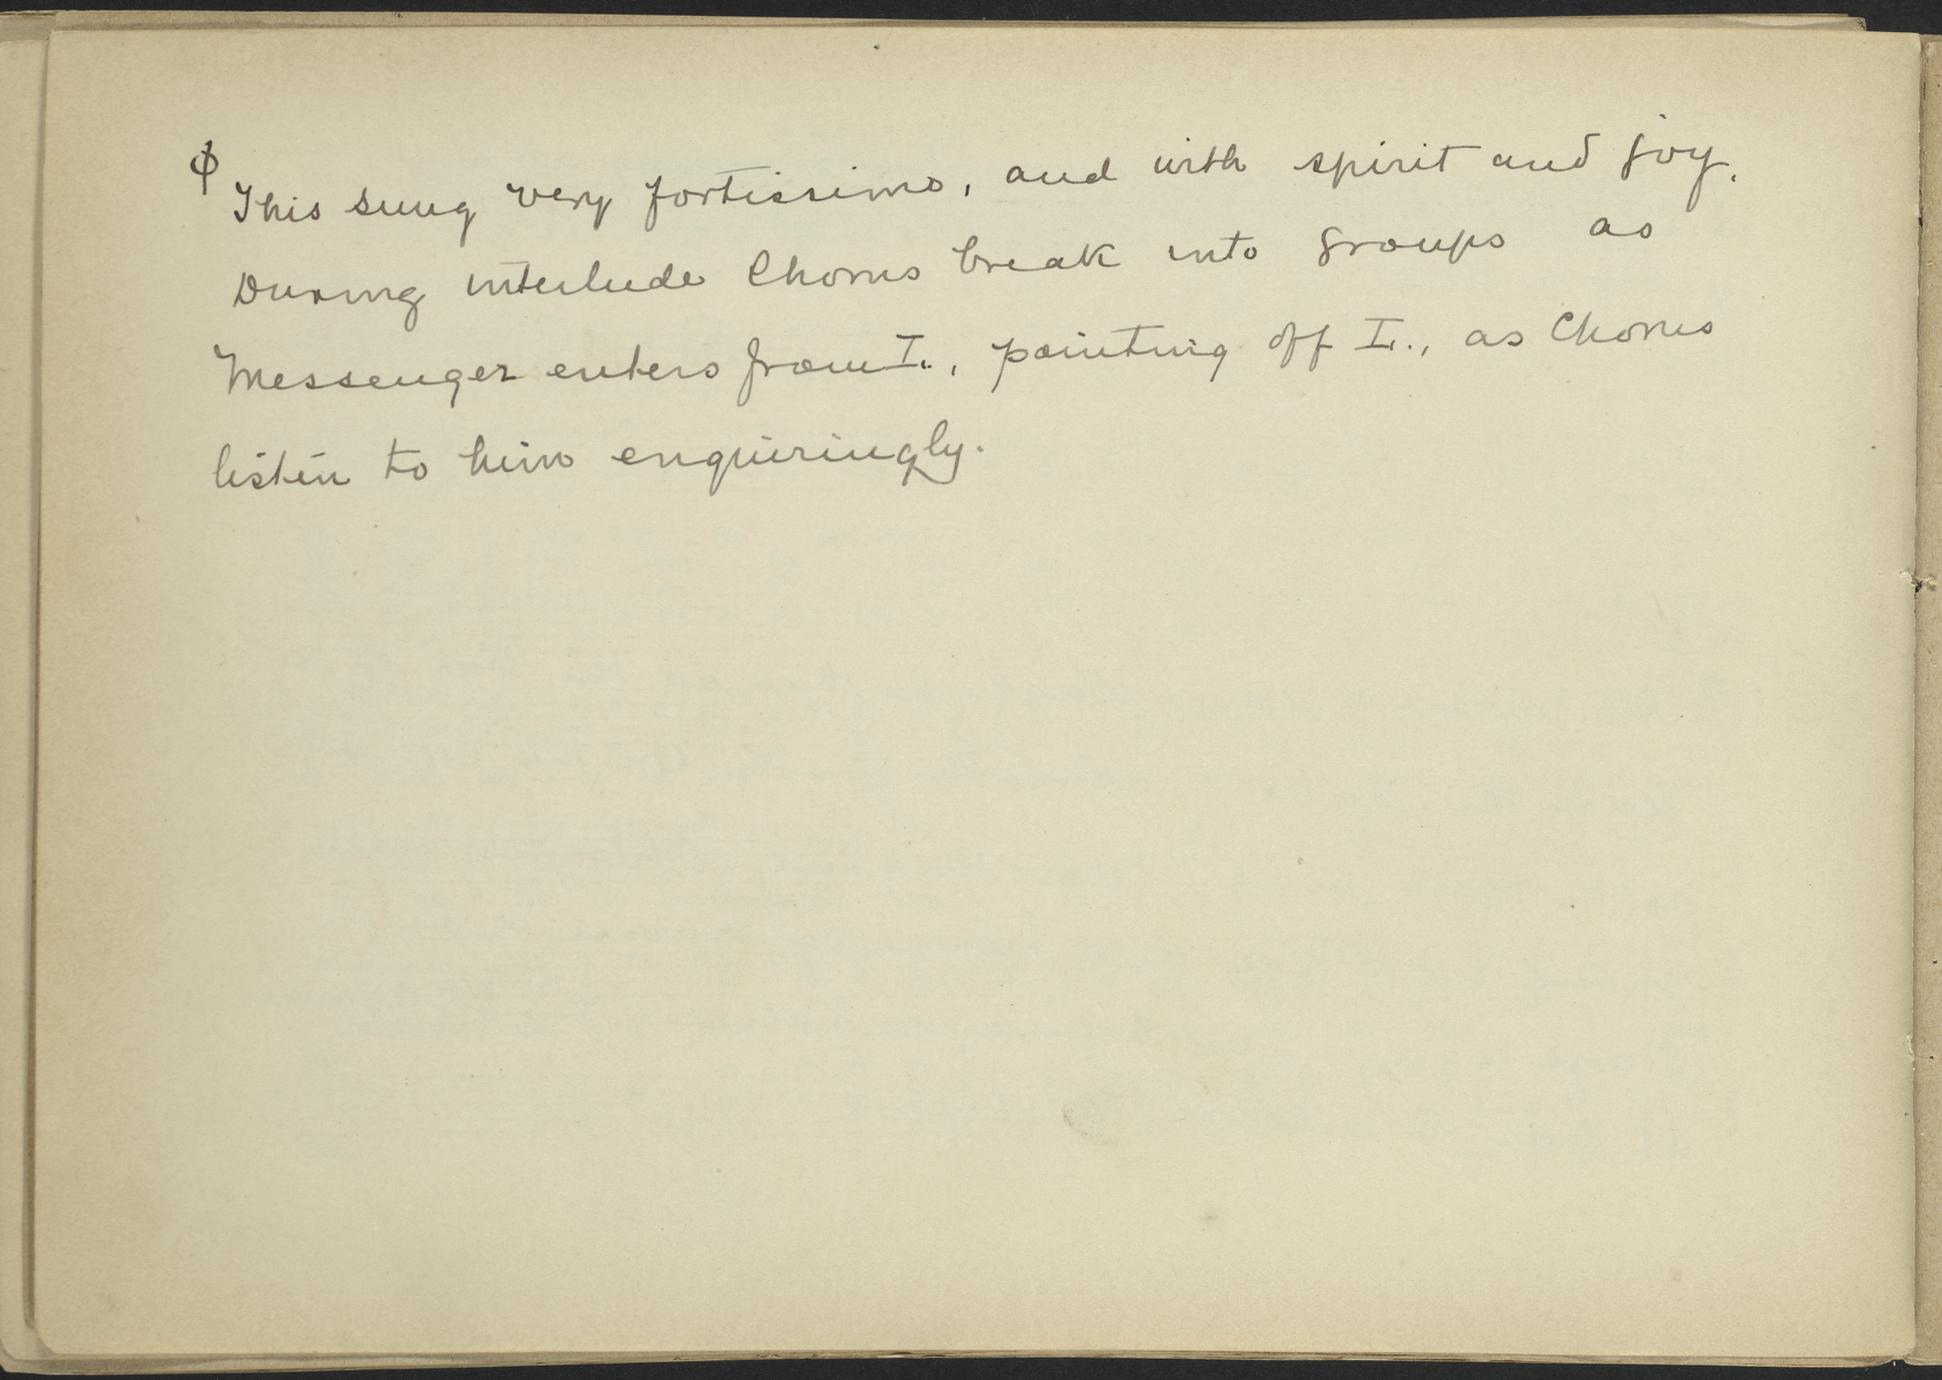 φ This sung very fortissimo, and with spirit and joy.
During interlude Chorus break into groups as
Messenger enters from L., pointing off L., as Chorus
listen to him enquiringly.